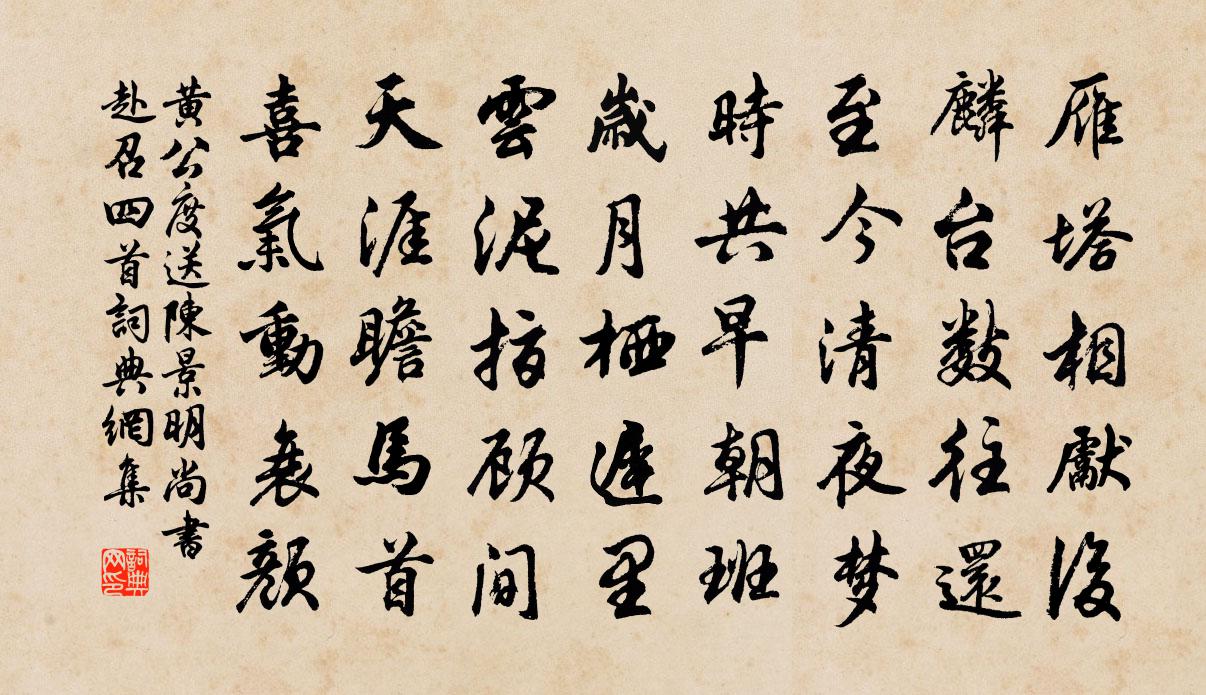 雁塔相獻後
麟台数往還
至今清夜梦
時共早朝班
歲月栖遲里
雲泥指顾間
天涯瞻馬首
喜氣動衰顏
黄公度送陳景明尚書
赴召四首詞典網集
詞典
网印